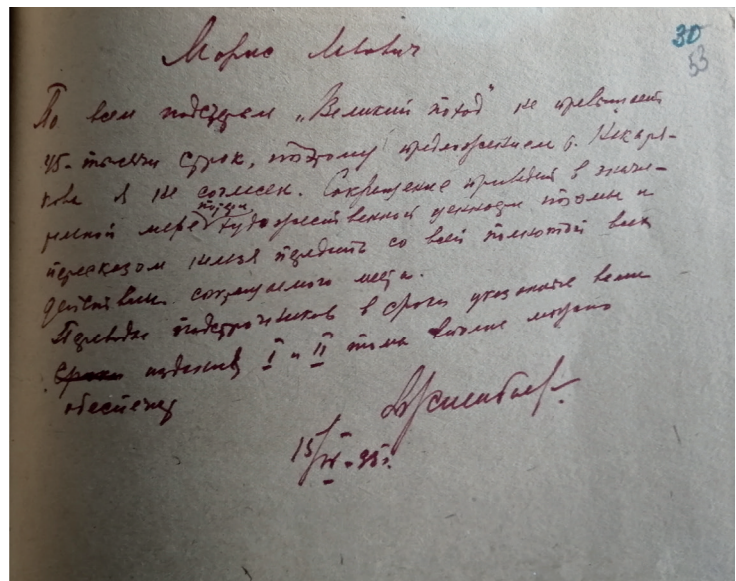 30
53
Морис Львович
По всем подсчетам „Великий поход" не превышает
45-тысячи строк, поэтому с предложением т. Некаря-
кова я не согласен. Сокращение приведет в значи-
тельной мере потери художественной ценности поэмы и
пересказом нельзя передать со всей полнотой всех
действий сокращаемого места.
Переводы подстрочников в сроки указанные вами
сроки издания I и II тома вполне можно
обеспечить
15/VI-35г.